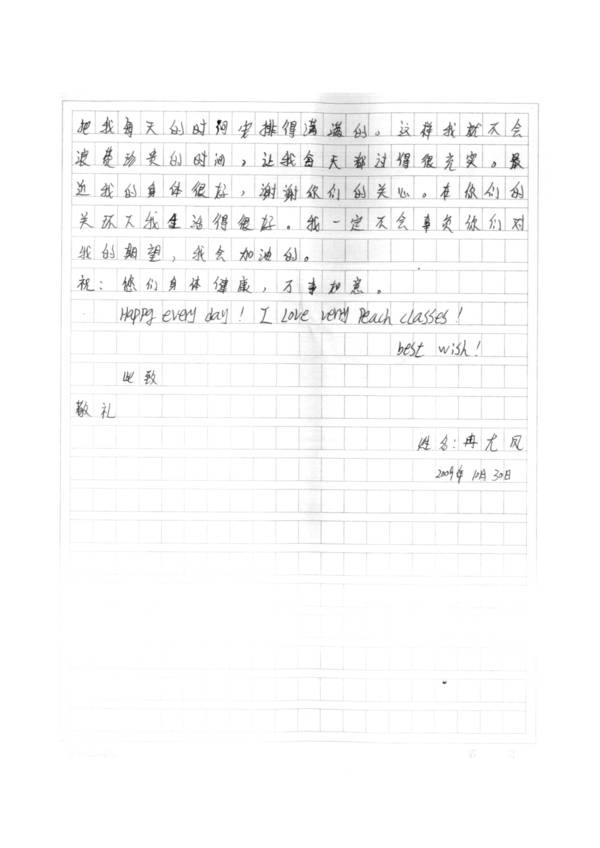 把我每天的时间安排得满满的。这样我就不会
浪费珍贵的时间，让我每天都过得很充实。最
近我的身体很好，谢谢你们的关心。在你们的
关环下我生活得很好。我一定不会辜负你们对
我的期望，我会加油的。
祝：您们身体健康，万事如意。
Happy every day! I Love very Peach classes!
best wish!
此致
敬礼
姓名：冉尤凤
2009年10月30日